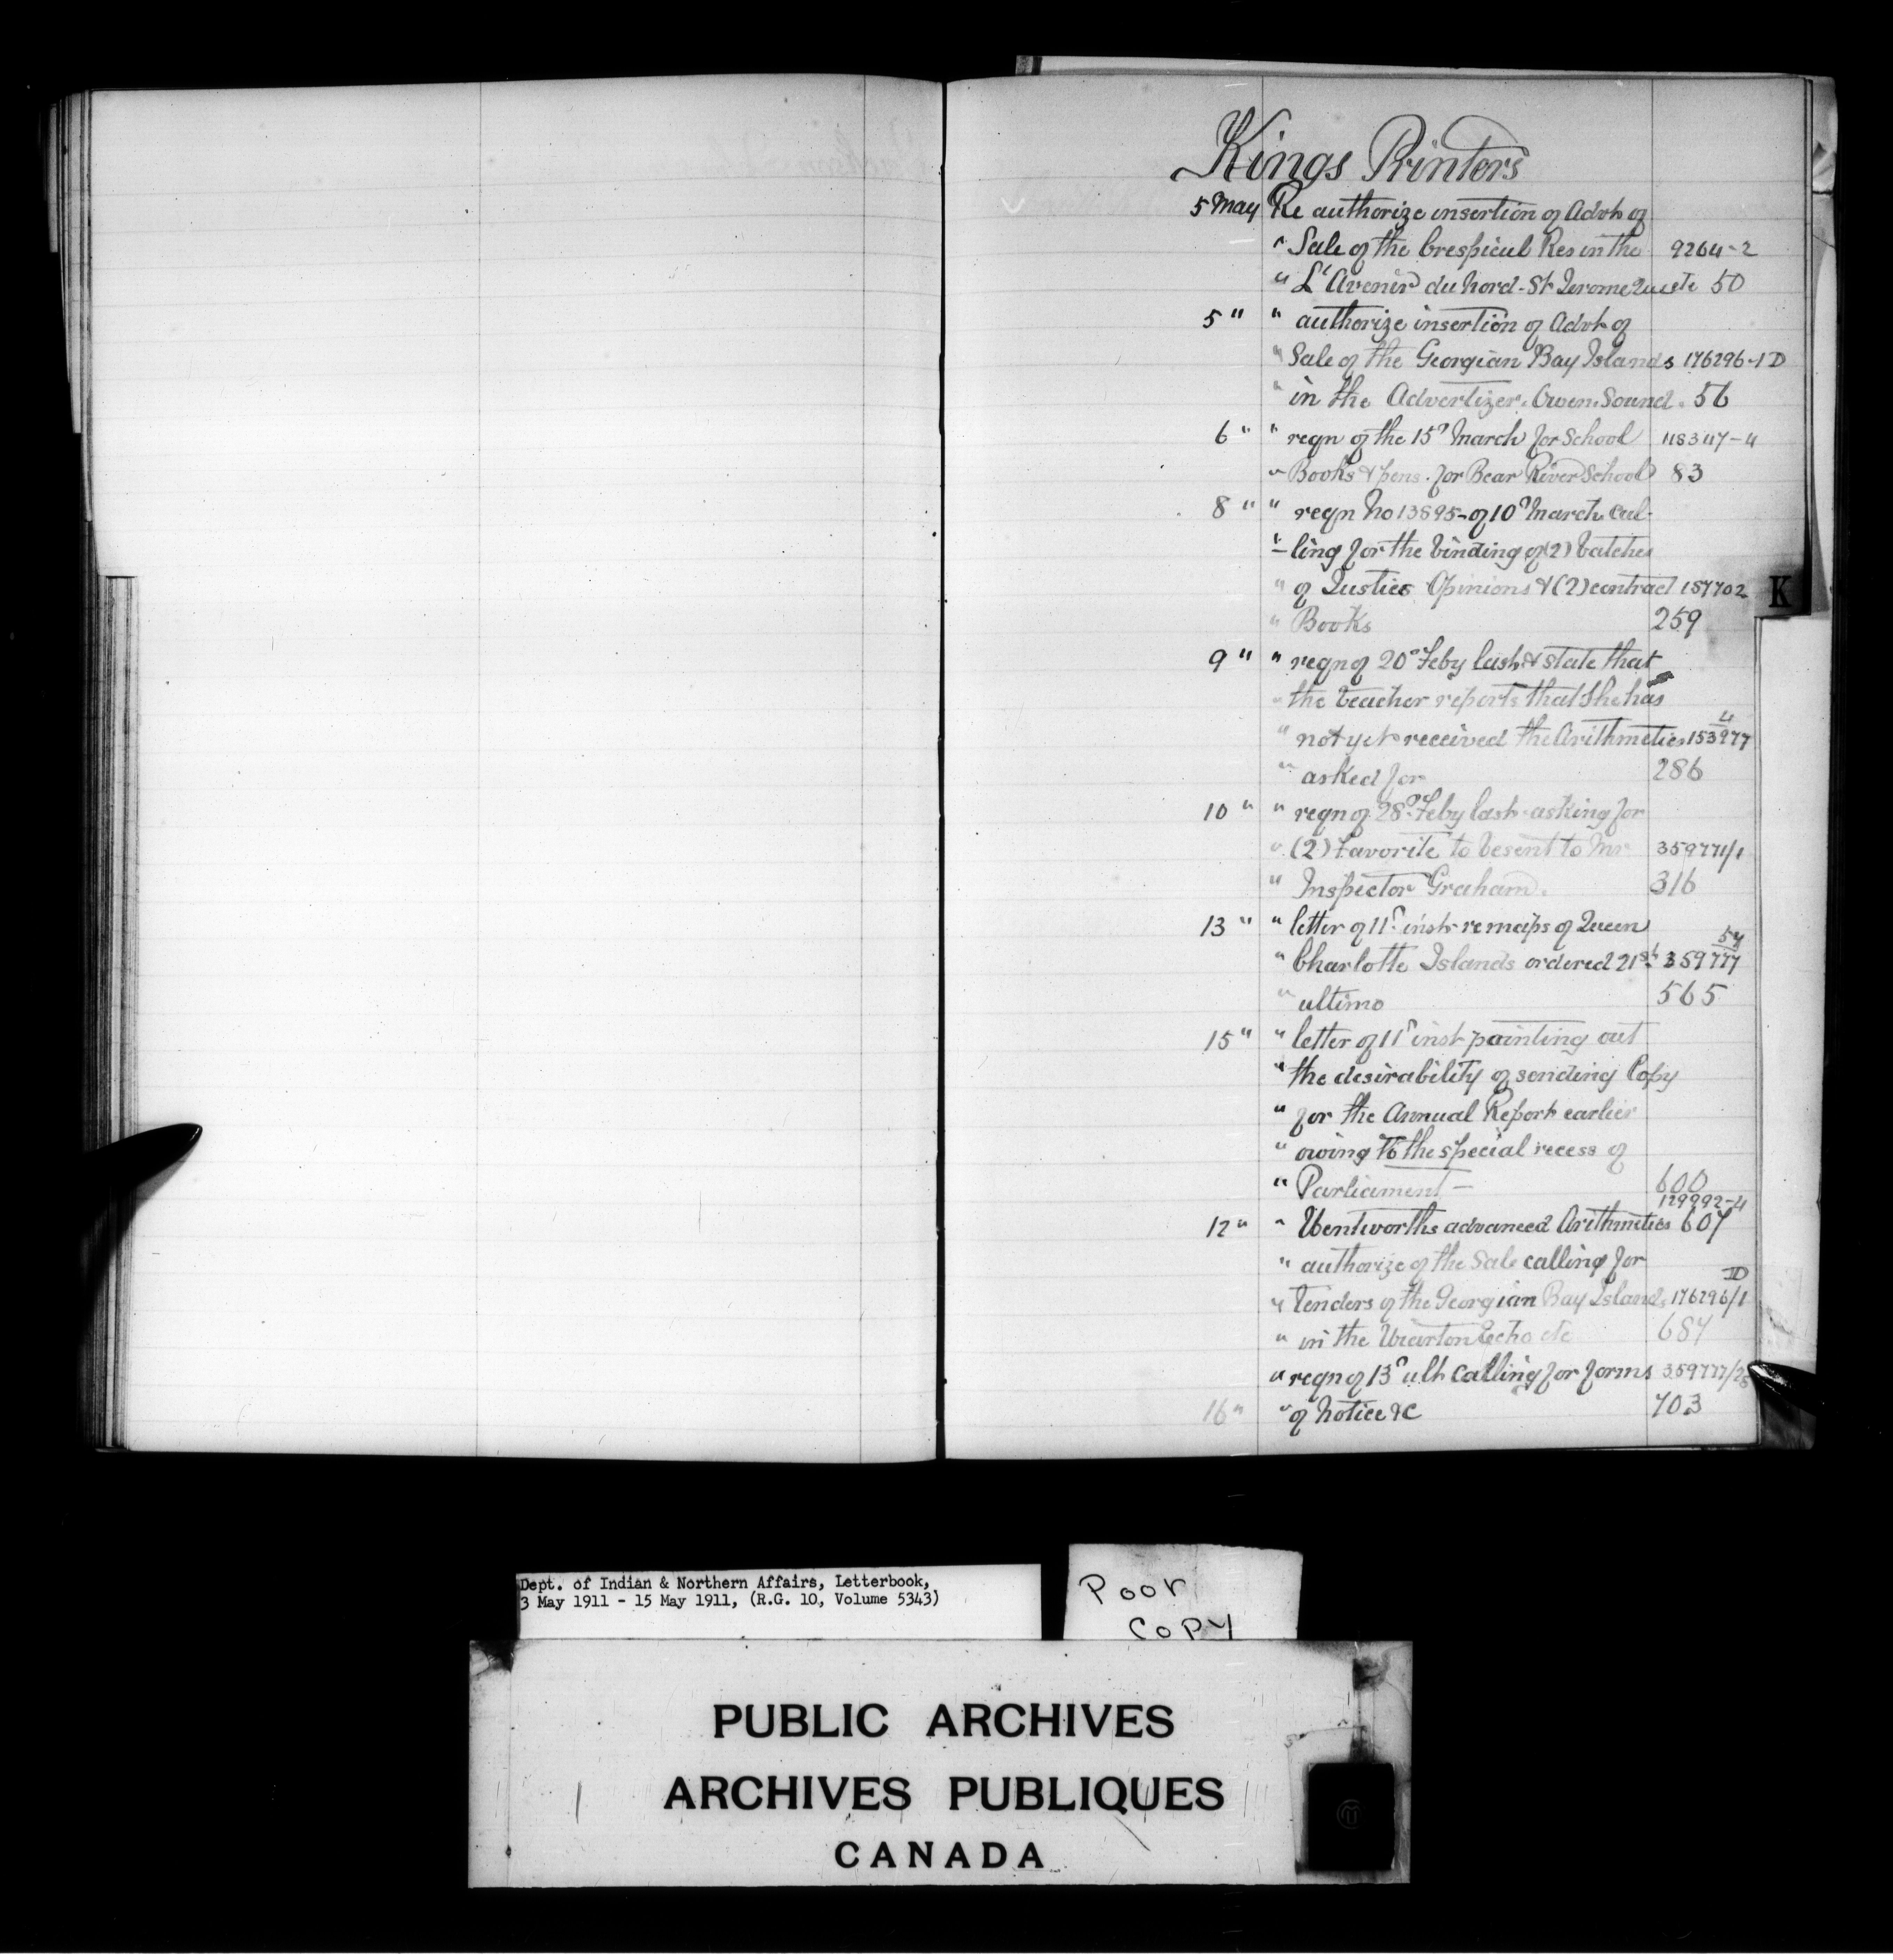 Kings Printers
5 May Re authorize insertion of Advt of
" Sale of the Crespieul Res in the 9264-2
" L'Avenir du Nord - St Jerome Quete 50
5 " " authorize insertion of Advt of
" Sale of the Georgian Bay Islands 176296-1 D
" in the Advertizer. Owen Sound. 56
6 " " reqn of the 15th March for School 118347-4
" Books & pens. for Bear River School 83
8 " " reqn No 13895 - of 10th March cal-
" ling for the binding of (2) batches
" of Justice Opinions & (2) contract 157702
" Books 259
9 " " reqn of 20th Feby last & state that
" the teacher reports that she has
" not yet received the Arithmetics 153977 4
" asked for 286
10 " " reqn of 28th Feby last asking for
" (2) Favorite to be sent to Mr 359771/1
" Inspector Graham. 316
13 " " letter of 11th inst re maps of Queen
" Charlotte Islands ordered 21st 359777 54
" ultimo 565
15 " " letter of 11th inst pointing out
" the desirability of sending Copy
" for the Annual Report earlier
" owing to the special recess of
" Parliament - 600
129992-4
12 " " Wentworths advanced Arithmetics 607
" authorize of the Sale calling for
" Tenders of the Georgian Bay Islands 176296/1 D
" in the Wiarton Echo etc 684
" reqn of 13th ult calling for forms 359777/28
16 " " of Notice &c 703
K
Dept. of Indian & Northern Affairs, Letterbook,
3 May 1911 - 15 May 1911, (R.G. 10, Volume 5343)
Poor
COPY
PUBLIC ARCHIVES
ARCHIVES PUBLIQUES
CANADA